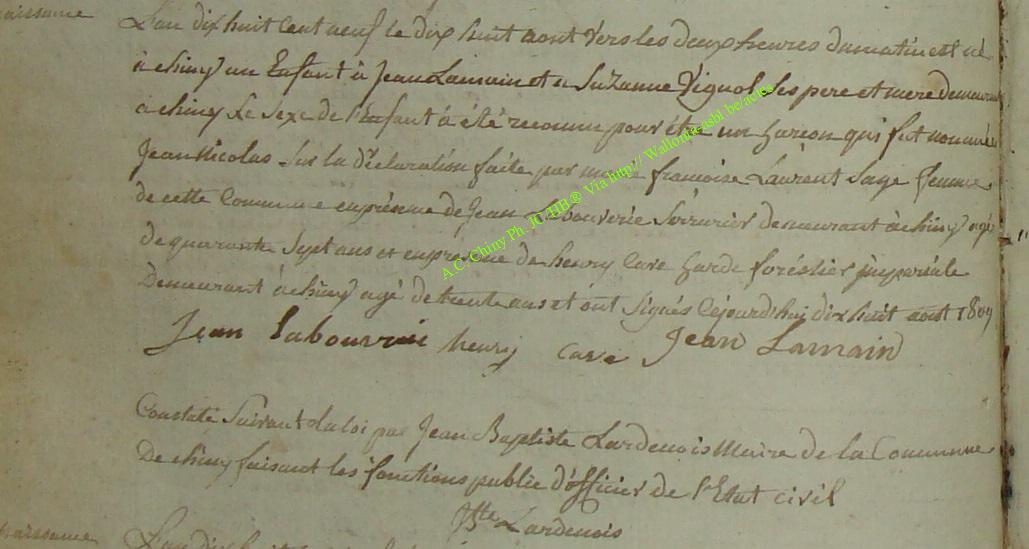 naissance
L'an dix huit cent neuf le dix huit aout vers les deux heures du matin est né
à chiny un Enfant à Jean Lamain et a Suzanne Vignol ses pere et mere demeurant
à chiny Le sexe de l'Enfant à été reconnu pour être un Garcon qui fut nommée
Jean Nicolas Sur la déclaration faite par françoise Laurent Sage femme
de cette Commune en présence de Jean Labouverie Serrurier demeurant à chiny agé
de quarante Sept ans et en présence de henry Cave Garde foréstier jmpériale
Demeurant à chiny agé de trente ans et ont Signés Cejourd'hui dix huit aout 1809
Jean Labouvrui henrij Cave Jean Lamain
Constaté Suivant La loi par Jean Baptiste Lardenois Maire de la Commune
De chiny faisant les fonctions public d'officier de l'Etat civil
JBte Lardenois
naissance
L'an dix huit
A.C. Chiny Ph. JC/HH® Via http:// Wallonia-asbl.be/actes